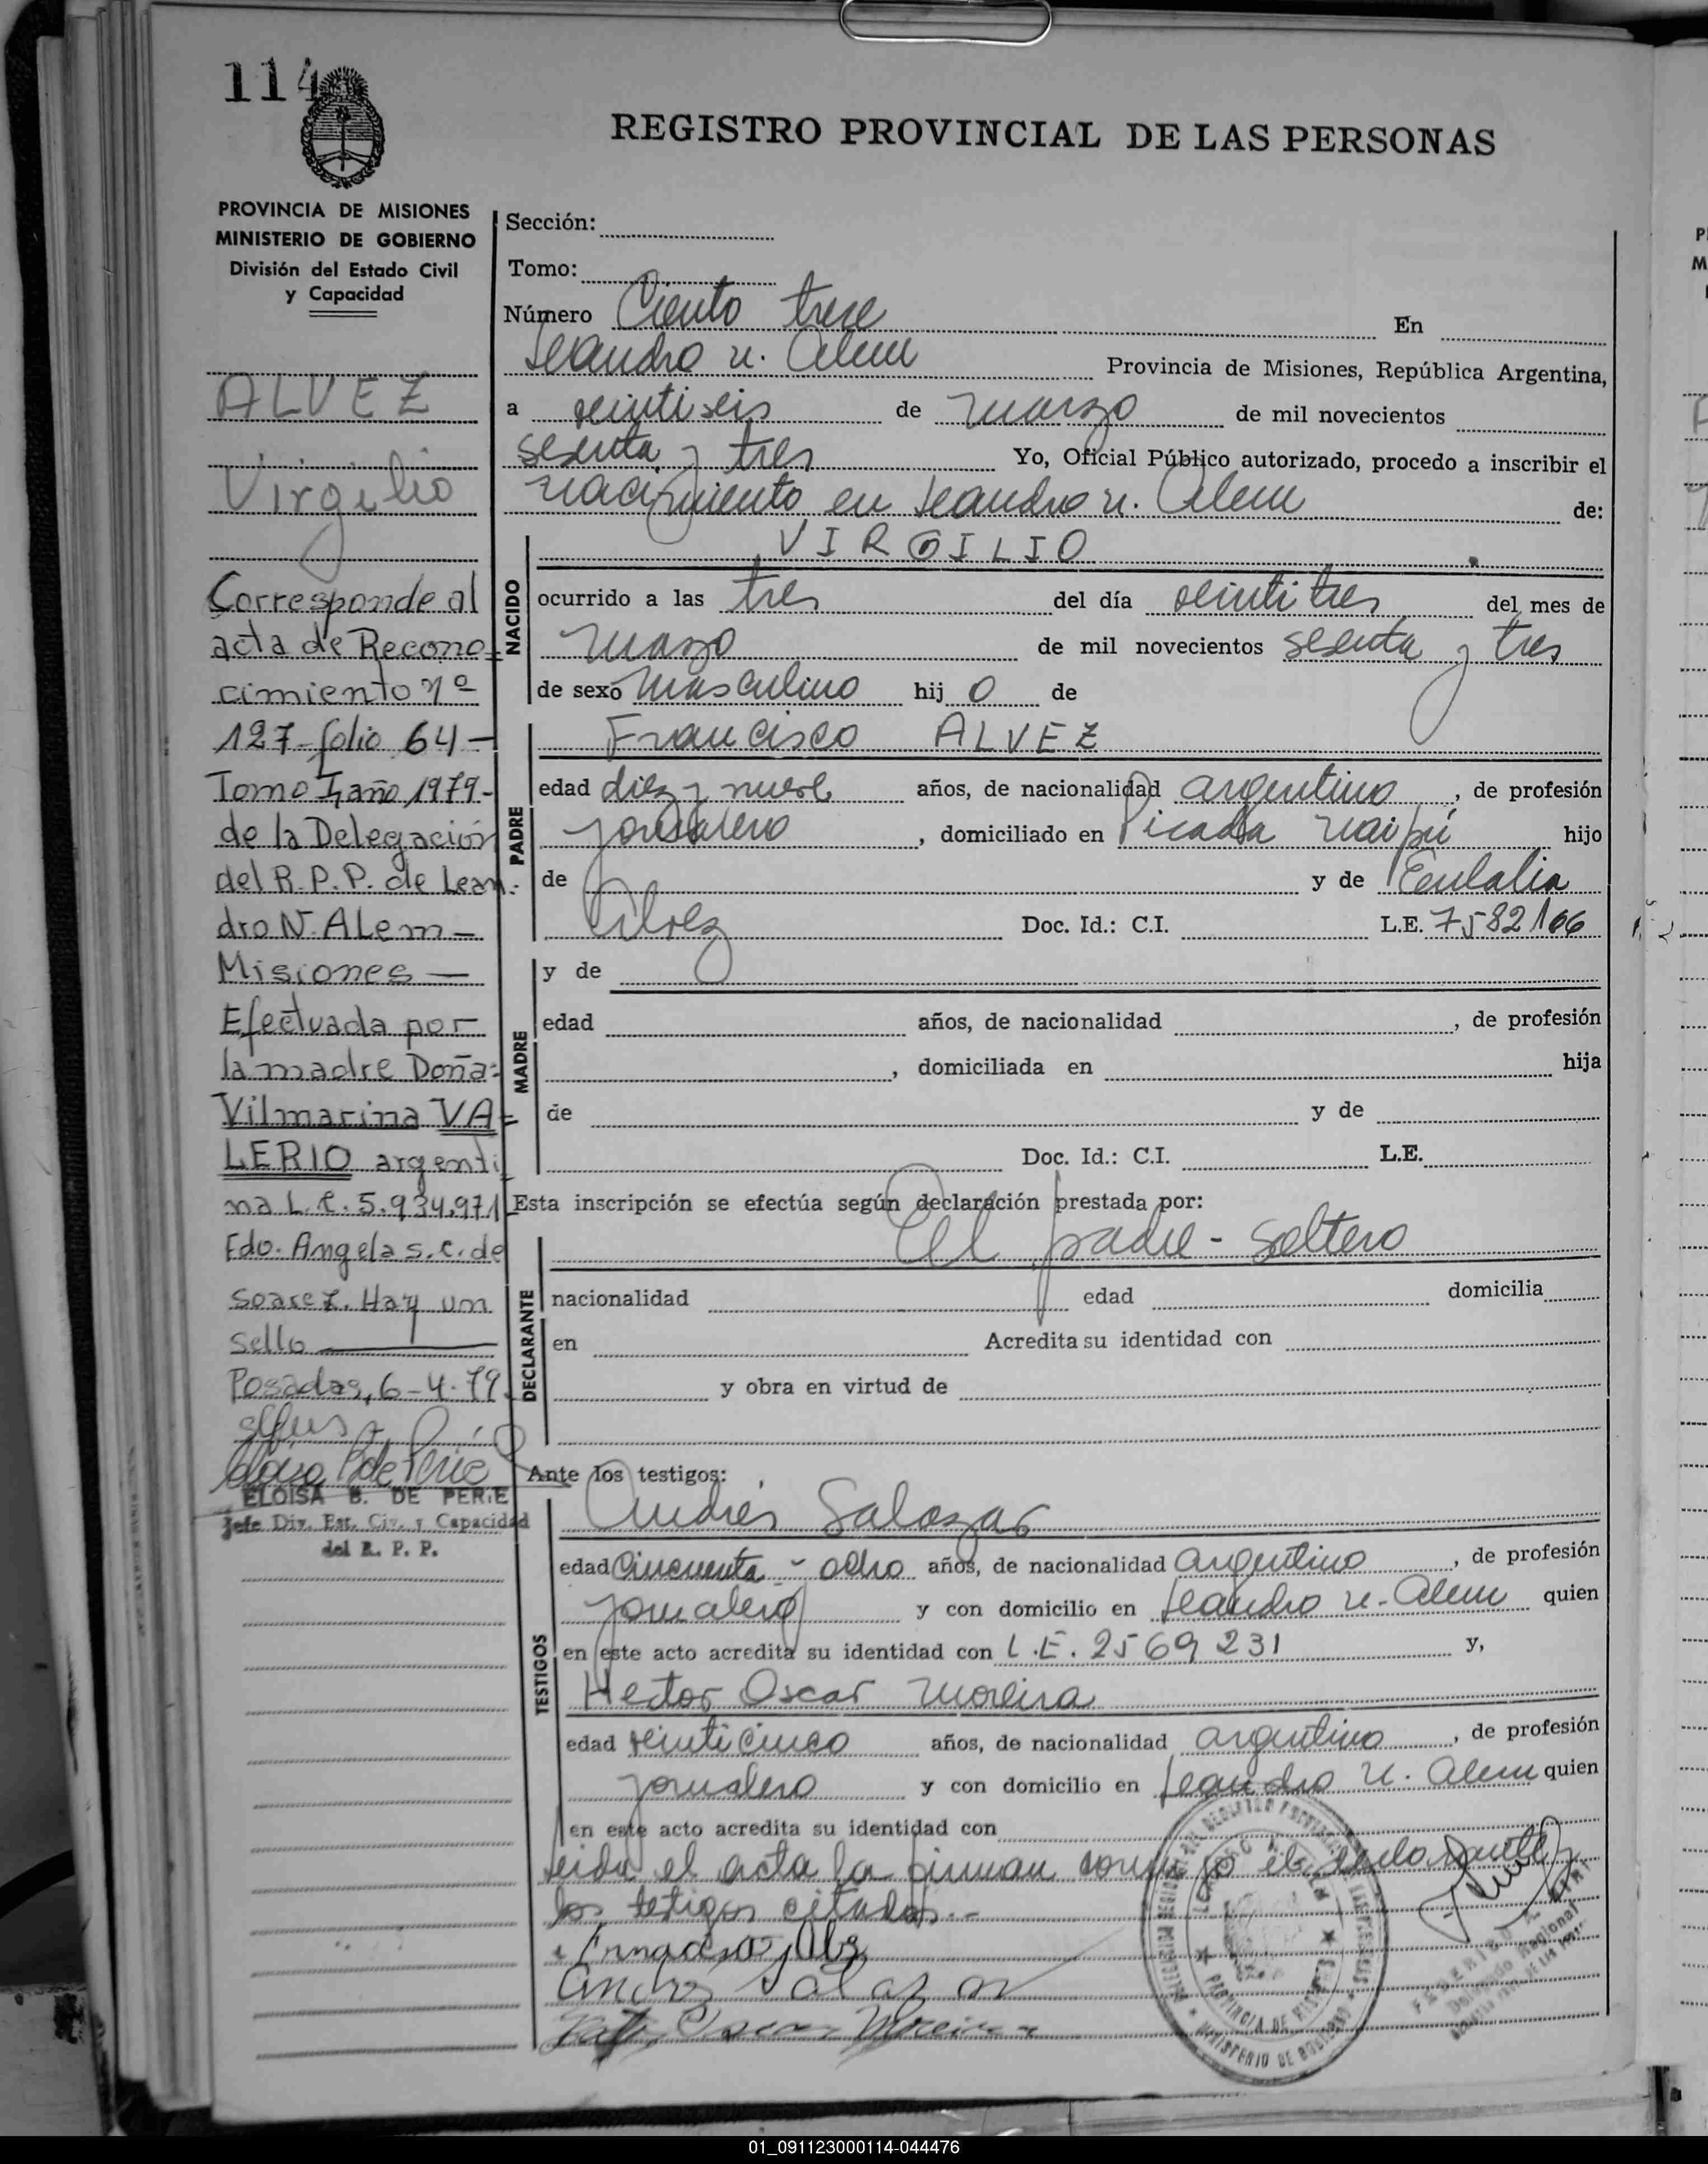 114
REGISTRO PROVINCIAL DE LAS PERSONAS
PROVINCIA DE MISIONES
MINISTERIO DE GOBIERNO
División del Estado Civil
y Capacidad
ALVEZ
Virgilio
Corresponde al
acta de Recono=
cimiento nº
127-folio 64-
Tomo I, año 1979-
de la Delegación
del R.P.P. de Lean-
dro N. ALem-
Misiones-
Efectuada por
la madre Doña:
Vilmarina VA=
LERIO argenti
na L.C. 5.934.971
Fdo. Angela S. C. de
Soarez. Hay un
sello
Posadas, 6-4-79.
ELOISA B. DE PERIE
Jefe Div. Est. Civ. y Capacidad
del R. P. P.
Sección:
Tomo:
Número Ciento trece En
Leandro N. Alem Provincia de Misiones, República Argentina,
a veintiseis de marzo de mil novecientos
sesenta y tres Yo, Oficial Público autorizado, procedo a inscribir el
nacimiento en Leandro N. Alem de:
NACIDO
VIRGILIO
ocurrido a las tres del día veintitres del mes de
marzo de mil novecientos sesenta y tres
de sexo masculino hijo de
PADRE
Francisco ALVEZ
edad diez y nueve años, de nacionalidad argentino, de profesión
jornalero, domiciliado en Picada Maipú hijo
de y de Eulalia
Alvez Doc. Id.: C.I. L.E. 7582166
MADRE
y de
edad años, de nacionalidad , de profesión
, domiciliada en hija
de y de
Doc. Id.: C.I. L.E.
Esta inscripción se efectúa según declaración prestada por:
DECLARANTE
El padre - Soltero
nacionalidad edad domicilia
en Acredita su identidad con
y obra en virtud de
Ante los testigos:
TESTIGOS
Andrés Salazar
edad cincuenta - ocho años, de nacionalidad argentino, de profesión
jornalero y con domicilio en Leandro N. Alem quien
en este acto acredita su identidad con L.E. 2569231 y,
Hector Oscar Moreira
edad veinticinco años, de nacionalidad argentino, de profesión
jornalero y con domicilio en Leandro N. Alem quien
en este acto acredita su identidad con
Leida el acta la firman conmigo el declarante y
los testigos citados.-
Andres Salazar
Oscar Moreira
PROVINCIA DE MISIONES
MINISTERIO DE GOBIERNO
01_091123000114-044476